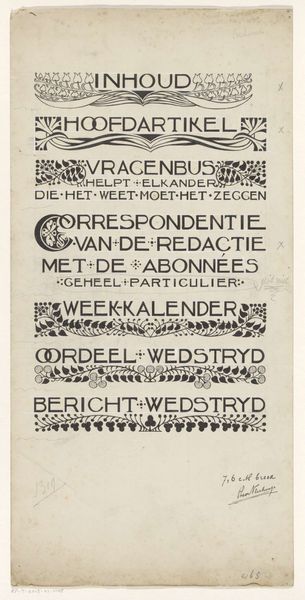 INHOUD
HOOFDARTIKEL
VRAGENBUS
HELPT ELKANDER
DIE·HET·WEET·MOET·HET·ZEGGEN
CORRESPONDENTIE
VAN·DE·REDACTIE
MET·DE·ABONNÉES
GEHEEL·PARTICULIER
WEEK-KALENDER
OORDEEL·WEDSTRYD
BERICHT·WEDSTRYD
7,6 cM breed